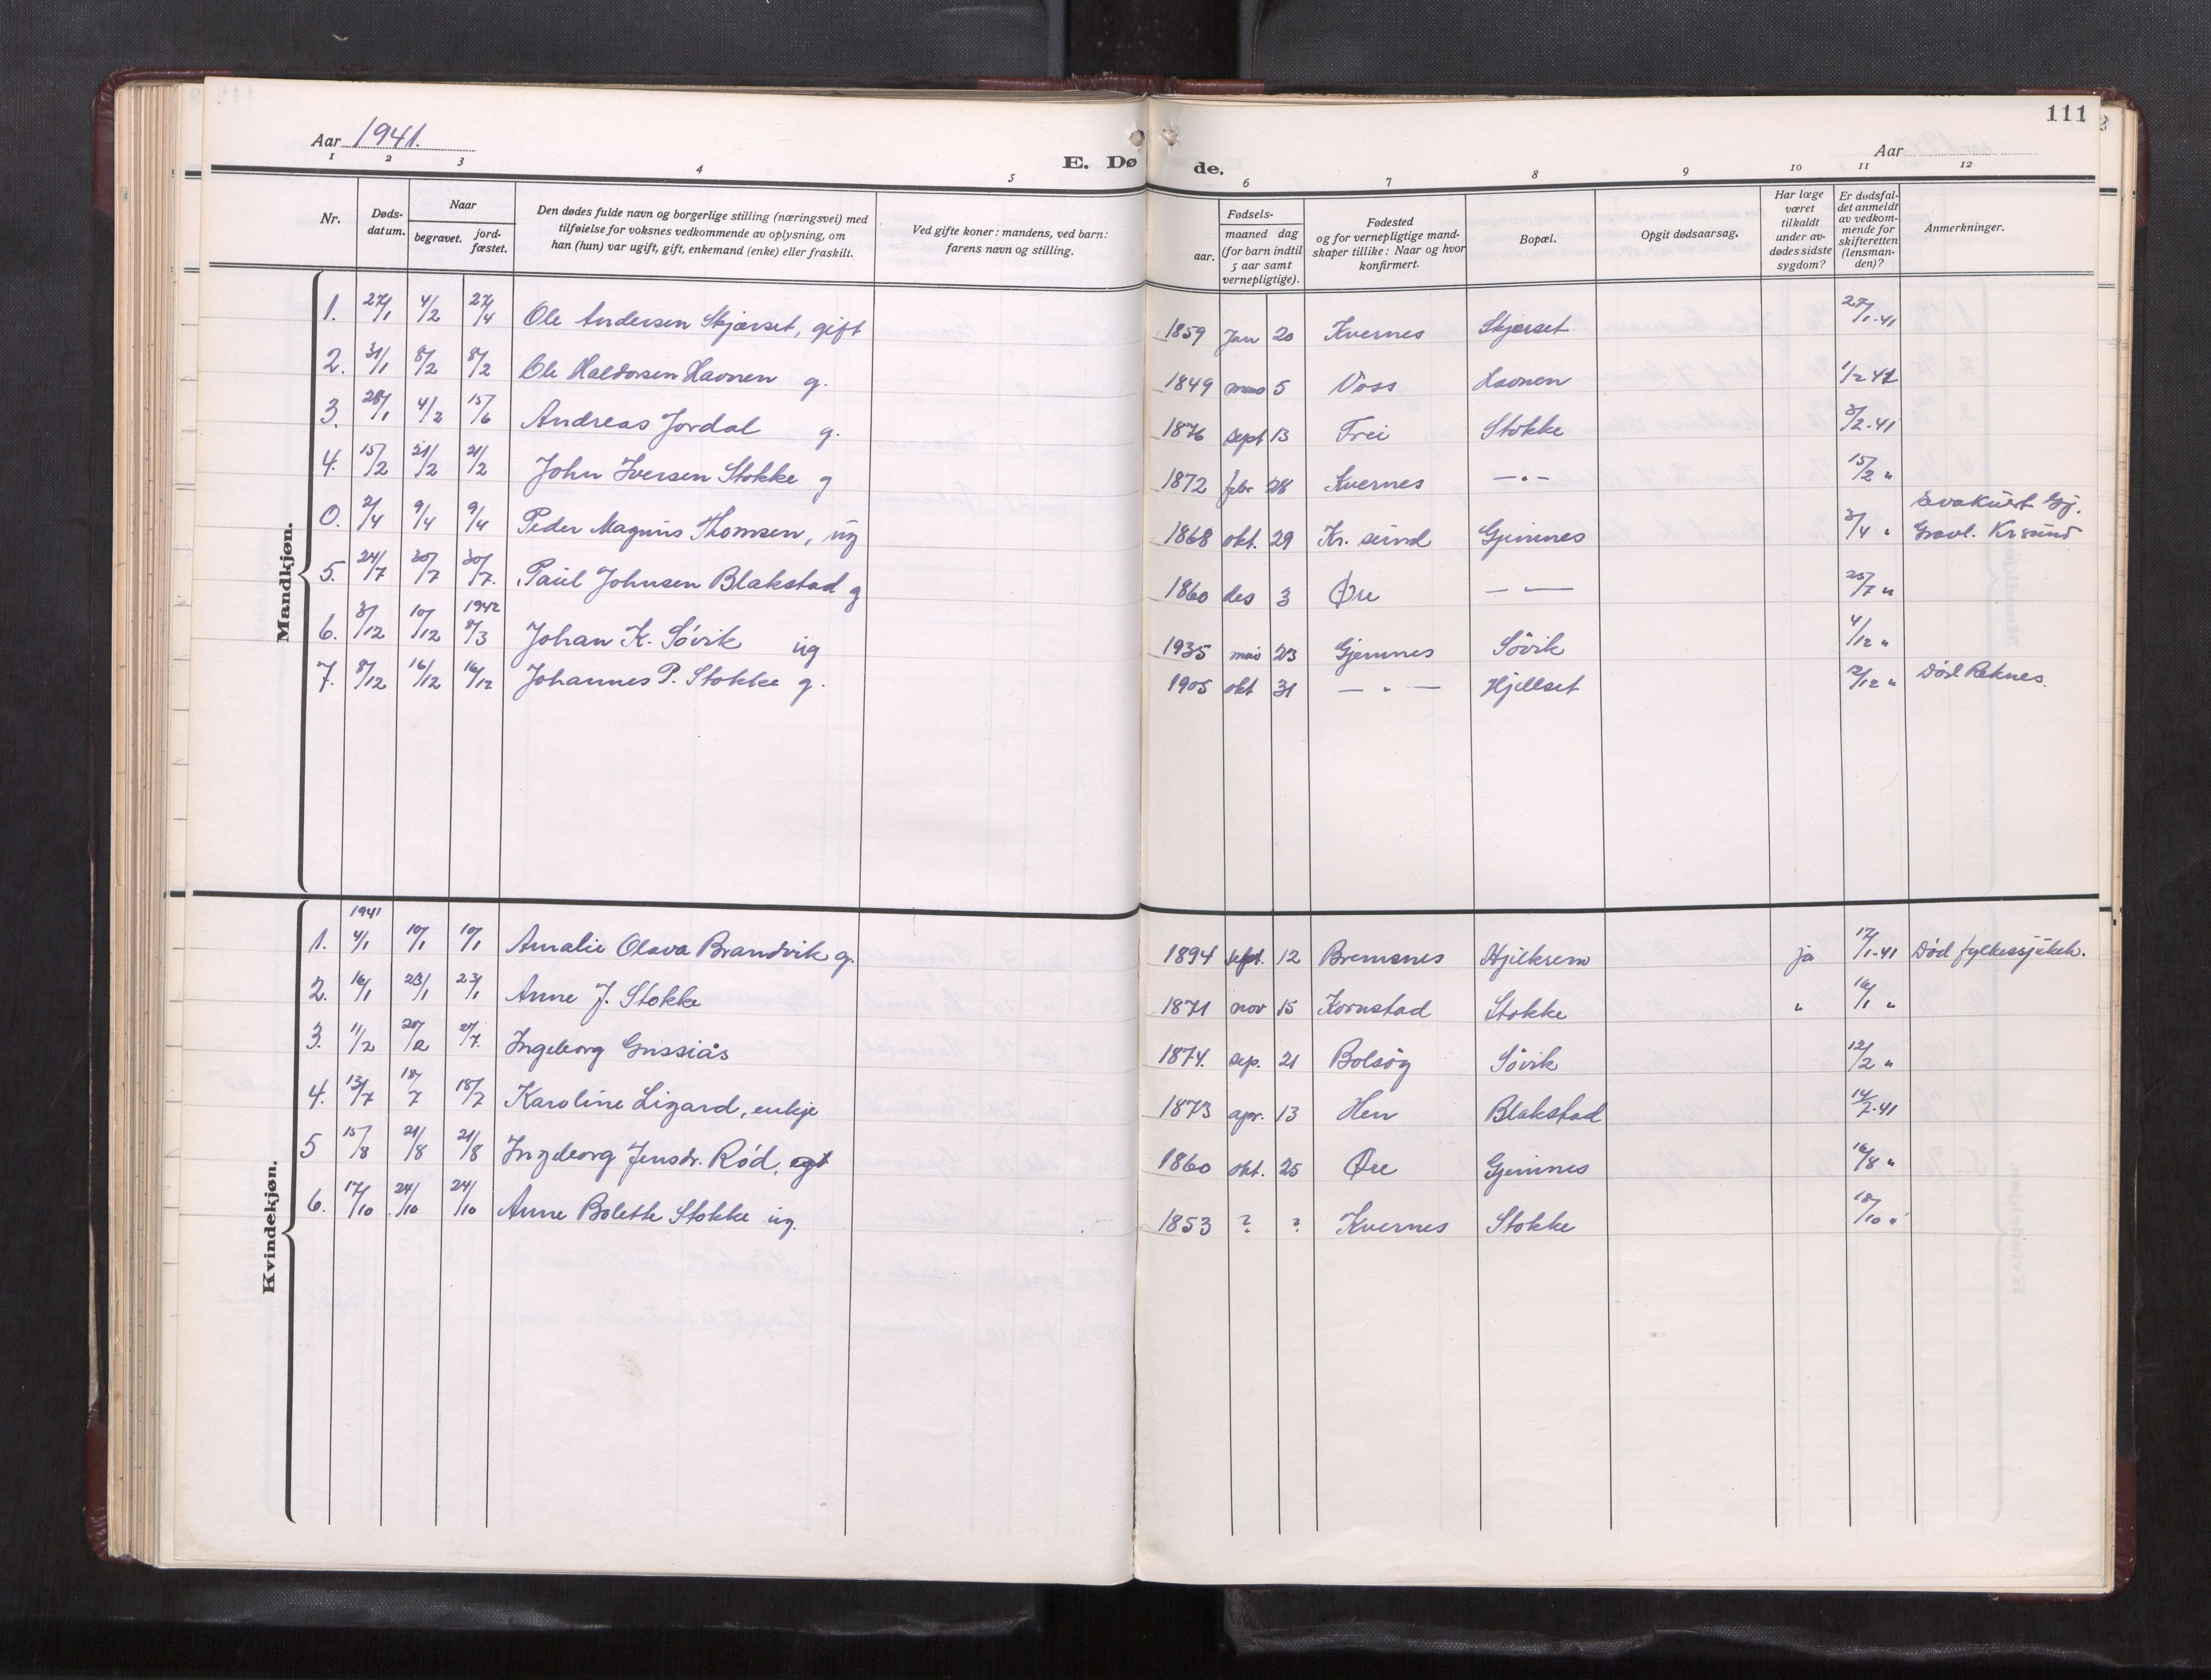 111
Aar 1941. Aar
E. Dø de.
1 2 3 4 5 6 7 8 9 10 11 12
Nr.
Døds-datum.
Naar
begravet. jord-fæstet.
Den dødes fulde navn og borgerlige stilling (næringsvei) med
tilføielse for voksnes vedkommende av oplysning, om
han (hun) var ugift, gift, enkemand (enke) eller fraskilt.
Ved gifte koner: mandens, ved barn:
farens navn og stilling.
Fødsels-
aar. maaned dag
(for barn indtil
5 aar samt
vernepligtige).
Fødested
og for vernepligtige mand-
skaper tillike: Naar og hvor
konfirmert.
Bopæl.
Opgit dødsaarsag.
Har læge
været
tilkaldt
under av-
dødes sidste
sygdom?
Er dødsfal-
det anmeldt
av vedkom-
mende for
skifteretten
(lensman-
den)?
Anmerkninger.
Mandkjøn.
1. 27/1 4/2 27/4 Ole Andersen Skjærset, gift 1859 Jan 20 Kvernes Skjærset 27/1-41
2. 31/1 8/2 8/2 Ole Haldorsen Havnen g. 1849 5 Voss Havnen 1/2 41
3. 28/1 4/2 15/6 Andreas Jordal g. 1876 sept 13 Frei Stokke 3/2-41
4. 15/2 21/2 21/2 John Iversen Stokke g 1872 febr 28 Kvernes — " — 15/2 "
Evakuert Gj.
0. 2/4 9/4 9/4 Peder Magnus Thomsen, ug 1868 okt. 29 Kr. sund Gjemnes 3/4 " Gravl. Krsund
5. 24/7 30/7 30/7. Paul Johnsen Blakstad g 1860 des 3 Øre — — 25/7 "
1942
6. 3/12 10/12 8/3 Johan K. Søvik ug 1935 mai 23 Gjemnes Søvik 4/12 "
7. 8/12 16/12 16/12 Johannes P. Stokke g. 1905 okt 31 — " — Hjellset 12/12 " Død Reknes.
Kvindekjøn.
1941
1. 4/1 10/1 10/1 Amalie Olava Brandvik g. 1894 sept. 12 Bremsnes Hjelkrem ja 17/1-41 Død fylkessjukeh.
2. 16/1 23/1 23/1 Anne J. Stokke 1871 nov 15 Kornstad Stokke " 16/1 "
3. 11/2 20/2 27/7. Ingeborg Gussiås 1874. sep. 21 Bolsøy Søvik 12/2 "
4. 13/7 18/7 18/7 Karoline Lizard, enkje 1873 apr. 13 Hen Blakstad 14/7-41
5 15/8 21/8 21/8 Ingeborg Jensdr. Rød, 1860 okt. 25 Øre Gjemnes 16/8 "
6. 17/10 24/10 24/10 Anne Bolette Stokke ug. 1853 ? ? Kvernes Stokke 18/10 "